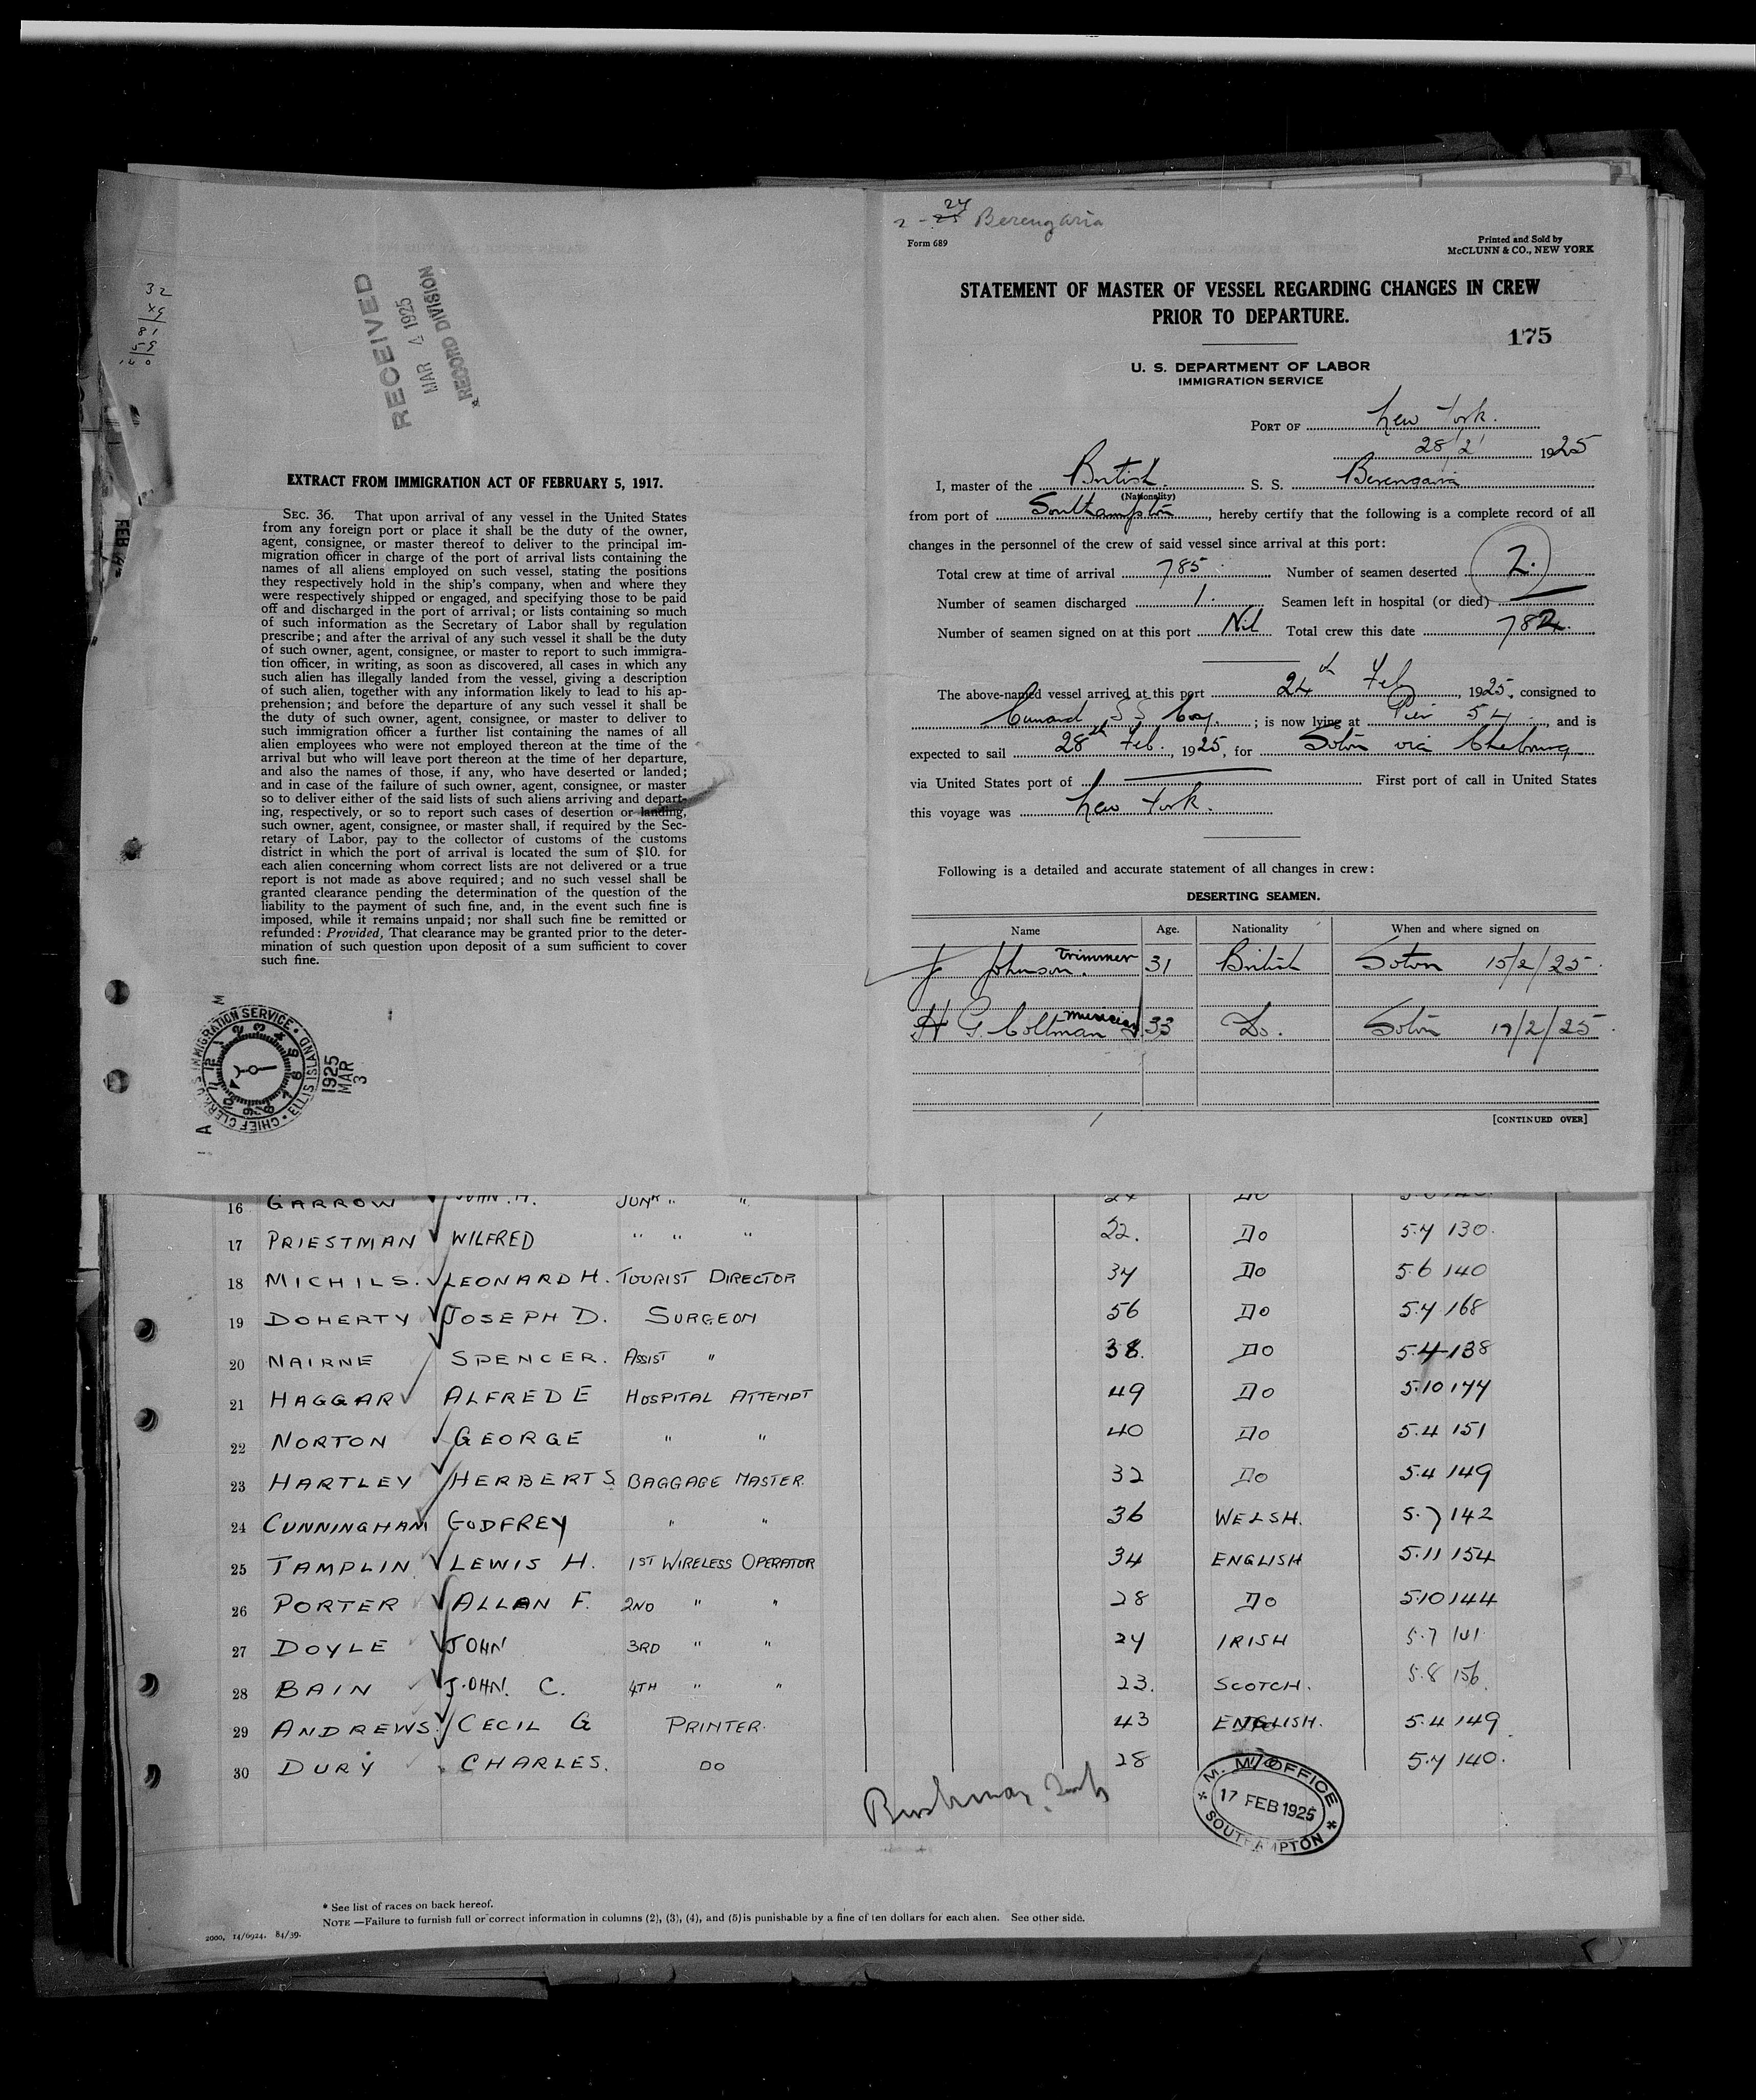 32
49
81
59
RECEIVED
MAR 4 1925
RECORD DIVISION
EXTRACT FROM IMMIGRATION ACT OF FEBRUARY 5, 1917.
SEC. 36. That upon arrival of any vessel in the United States
from any foreign port or place it shall be the duty of the owner,
agent, consignee, or master thereof to deliver to the principal im-
migration officer in charge of the port of arrival lists containing the
names of all aliens employed on such vessel, stating the positions
they respectively hold in the ship's company, when and where they
were respectively shipped or engaged, and specifying those to be paid
off and discharged in the port of arrival; or lists containing so much
of such information as the Secretary of Labor shall by regulation
prescribe; and after the arrival of any such vessel it shall be the duty
of such owner, agent, consignee, or master to report to such immigra-
tion officer, in writing, as soon as discovered, all cases in which any
such alien has illegally landed from the vessel, giving a description
of such alien, together with any information likely to lead to his ap-
prehension; and before the departure of any such vessel it shall be
the duty of such owner, agent, consignee, or master to deliver to
such immigration officer a further list containing the names of all
alien employees who were not employed thereon at the time of the
arrival but who will leave port thereon at the time of her departure,
and also the names of those, if any, who have deserted or landed;
and in case of the failure of such owner, agent, consignee, or master
so to deliver either of the said lists of such aliens arriving and depart-
ing, respectively, or so to report such cases of desertion or landing,
such owner, agent, consignee, or master shall, if required by the Sec-
retary of Labor, pay to the collector of customs of the customs
district in which the port of arrival is located the sum of $10. for
each alien concerning whom correct lists are not delivered or a true
report is not made as above required; and no such vessel shall be
granted clearance pending the determination of the question of the
liability to the payment of such fine, and, in the event such fine is
imposed, while it remains unpaid; nor shall such fine be remitted or
refunded: Provided, That clearance may be granted prior to the deter-
mination of such question upon deposit of a sum sufficient to cover
such fine.
CHIEF CLERK U.S IMMIGRATION SERVICE • ELLIS ISLAND
1925
MAR
3
2 - 24 Berengaria
Form 689
Printed and Sold by
McCLUNN & CO., NEW YORK
STATEMENT OF MASTER OF VESSEL REGARDING CHANGES IN CREW
PRIOR TO DEPARTURE.
175
U. S. DEPARTMENT OF LABOR
IMMIGRATION SERVICE
PORT OF New York.
28/2/ 1925
I, master of the British. S. S. Berengaria
(Nationality)
from port of Southampton, hereby certify that the following is a complete record of all
changes in the personnel of the crew of said vessel since arrival at this port:
Total crew at time of arrival 785 Number of seamen deserted 2.
Number of seamen discharged 1. Seamen left in hospital (or died) —
Number of seamen signed on at this port Nil Total crew this date 782.
The above-named vessel arrived at this port 24th Feby, 1925, consigned to
Cunard S S Coy.; is now lying at Pier 54, and is
expected to sail 28th Feb., 1925, for Soton via Cherbourg
via United States port of — First port of call in United States
this voyage was New York.
Following is a detailed and accurate statement of all changes in crew:
DESERTING SEAMEN.
Name Age. Nationality When and where signed on
J Johnson. Trimmer 31 British Soton 15/2/25.
H G. Coltman musician 33 Do. Soton 17/2/25.
[CONTINUED OVER]
16 GARROW JOHN. H. JUNR " " 24 DO
17 PRIESTMAN WILFRED " " " 22. DO 5.7 130.
18 MICHILS. LEONARD H. TOURIST DIRECTOR 34 DO 5.6 140
19 DOHERTY JOSEPH D. SURGEON 56 DO 5.7 168
20 NAIRNE SPENCER. ASSIST " 38. DO 5.4 138
21 HAGGAR ALFRED E HOSPITAL ATTENDT 49 DO 5.10 177
22 NORTON GEORGE " " 40 DO 5.4 151
23 HARTLEY HERBERT S BAGGAGE MASTER. 32 DO 5.4 149
24 CUNNINGHAM GODFREY " " 36 WELSH. 5.7 142
25 TAMPLIN LEWIS H. 1ST WIRELESS OPERATOR 34 ENGLISH 5.11 154
26 PORTER ALLAN F. 2ND " " 28 DO 5.10 144
27 DOYLE JOHN 3RD " " 24 IRISH 5.7
28 BAIN JOHN. C. 4TH " " 23. SCOTCH. 5.8 156.
29 ANDREWS. CECIL G PRINTER. 43 ENGLISH. 5.4 149
30 DURY CHARLES. DO 28 5.7 140.
M. M. OFFICE
17 FEB 1925
SOUTHAMPTON
* See list of races on back hereof.
NOTE —Failure to furnish full or correct information in columns (2), (3), (4), and (5) is punishable by a fine of ten dollars for each alien. See other side.
2000, 14/6924. 84/39.